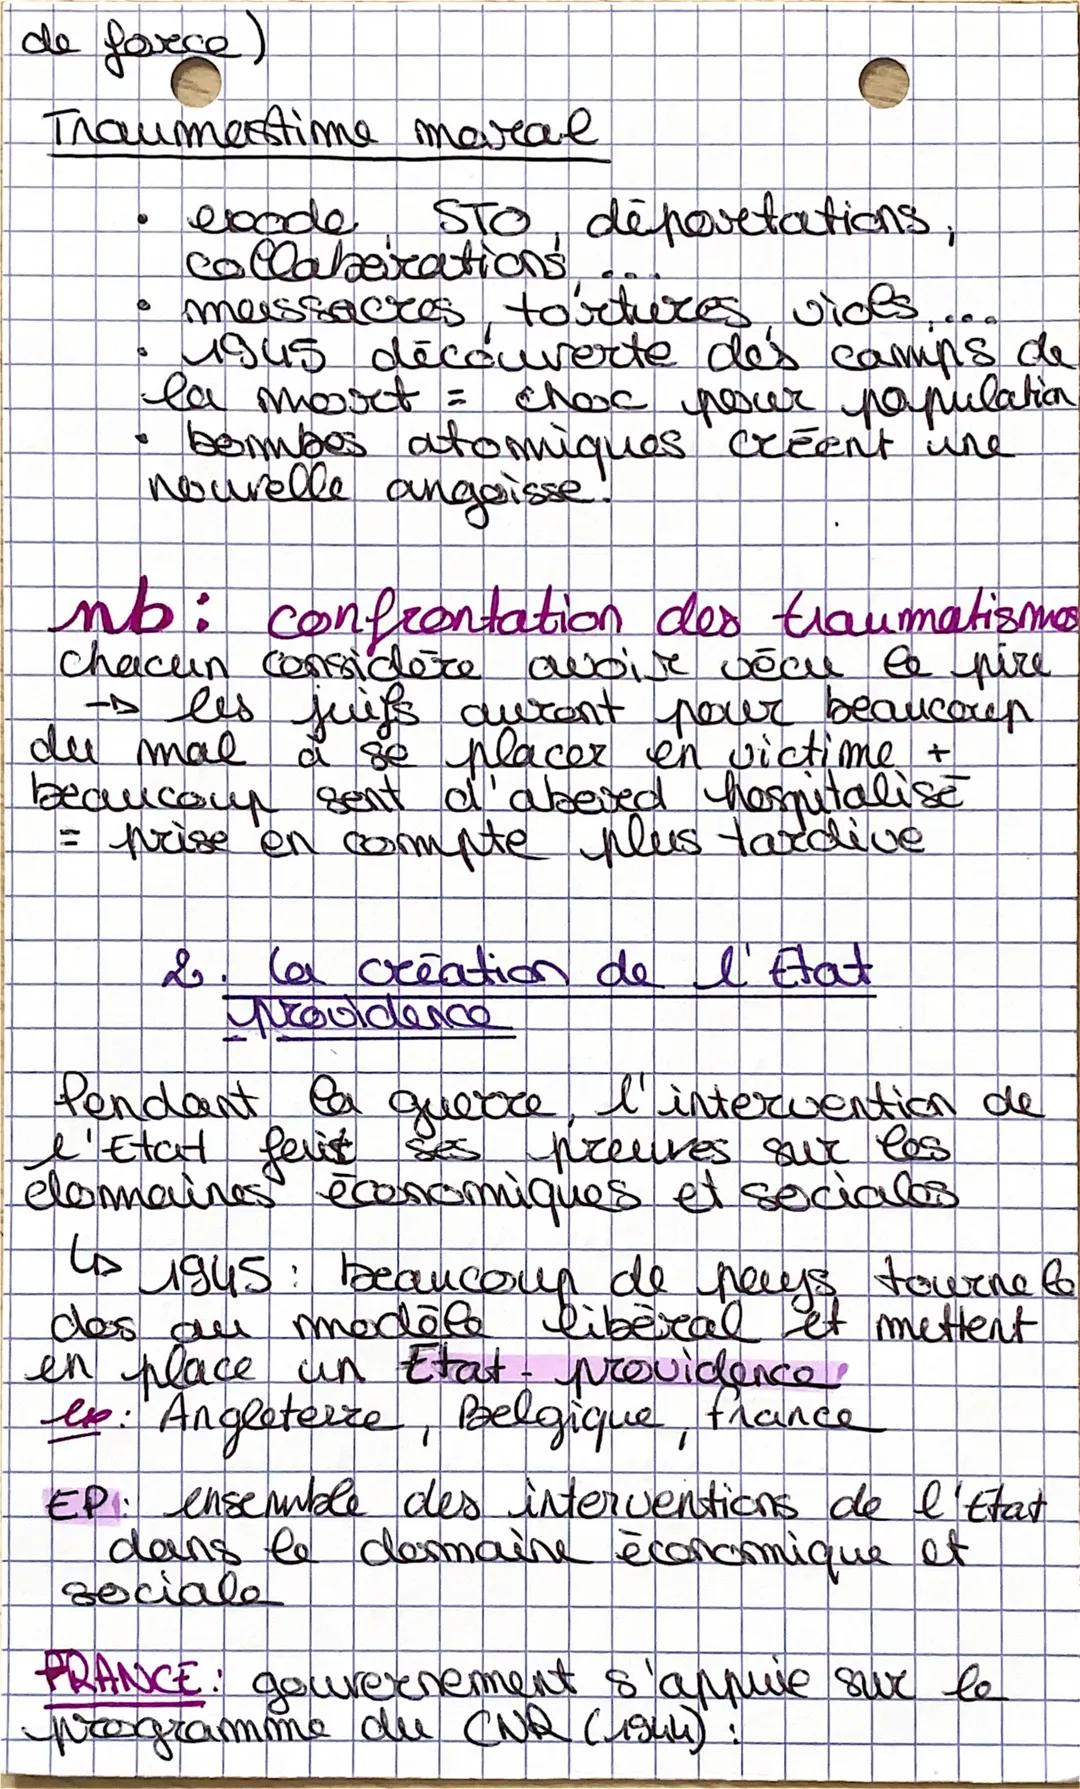 de force)
Traumatisme moral
• exode, STO, déportations,
collaborations, ...
• massacres, tortures, viols, ...
• 1945 découverte des camps de
la mort = choc pour population
• bombes atomiques créent une
nouvelle angoisse.
nb : confrontation des traumatismes
chacun considère avoir vécu le pire
→ les juifs auront pour beaucoup
du mal à se placer en victime +
beaucoup sont d'abord hospitalisé
= prise en compte plus tardive
2. la création de l'Etat
providence
Pendant la guerre, l'intervention de
l'Etat fait ses preuves sur les
domaines économiques et sociales
↳ 1945 : beaucoup de pays tourne le
dos au modèle libéral et mettent
en place un Etat-providence
ex : Angleterre, Belgique, france
EP : ensemble des interventions de l'Etat
dans le domaine économique et
sociale
FRANCE : gouvernement s'appuie sur le
programme du CNR (1944) :